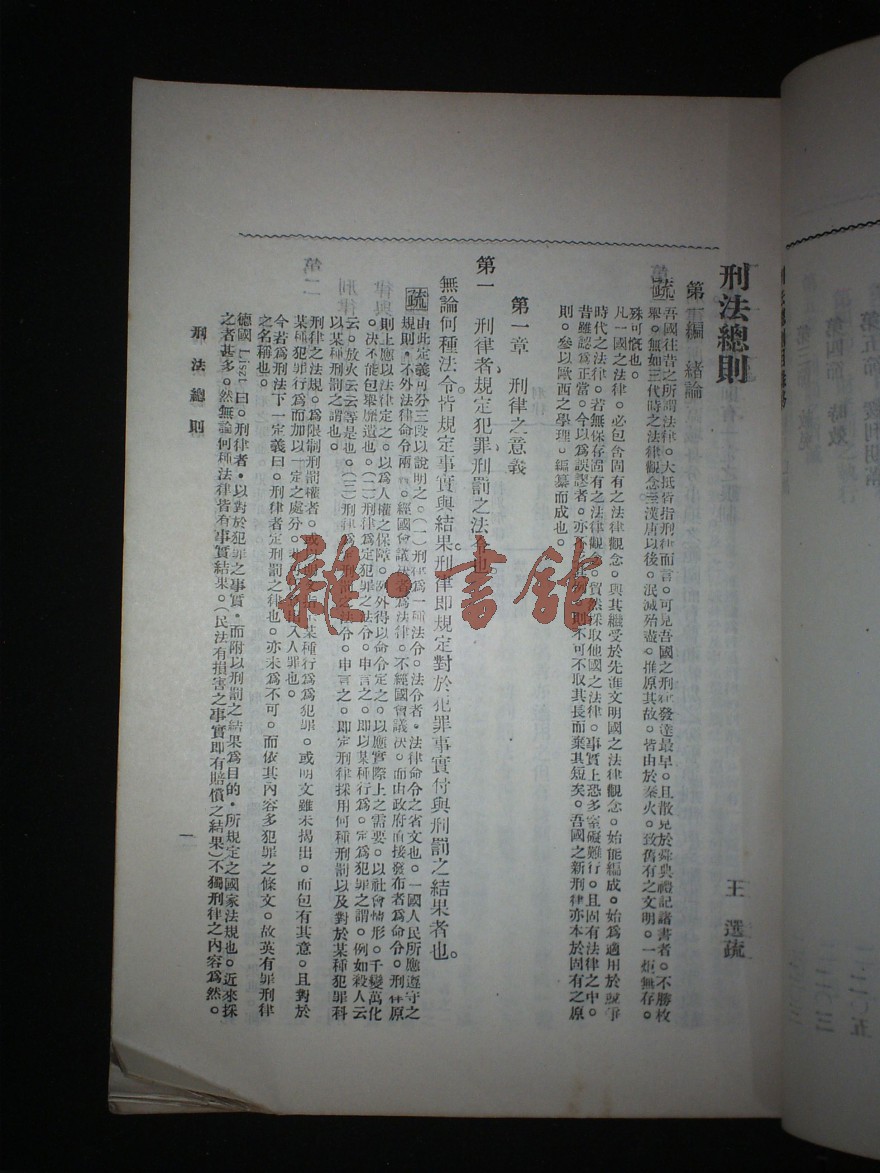 刑法總則
王 選疏
第一編 緒論
疏 吾國往昔之所謂法律。大抵皆指刑律而言。可見吾國之刑律發達最早。且散見於舜典禮記諸書者。不勝枚
舉。無如三代時之法律觀念至漢唐以後。泯滅殆盡。推原其故。皆由於秦火。致舊有之文明。一炬無存。
殊可慨也。
凡一國之法律。必包含固有之法律觀念。與其繼受於先進文明國之法律觀念。始能編成。始爲適用於
時代之法律。若無保存固有之法律觀念。貿然採取他國之法律。事實上恐多窒礙難行。且固有法律之中。
昔雖認爲正當。今以爲誤謬者。亦不 例。則不可不取其長而棄其短矣。吾國之新刑律亦本於固有之原
則。參以歐西之學理。編纂而成也。
第一章 刑律之意義
第一 刑律者規定犯罪刑罰之法 也
無論何種法令皆規定事實與結果。刑律即規定對於犯罪事實付與刑罰之結果者也。
疏 由此定義可分三段以說明之。(一)刑律爲一種法令。法令者。法律命令之省文也。一國人民所應遵守之
規則。不外法律命令兩 。經國會議決者爲法律。不經國會議決。而由政府直接發布者爲命令。刑律原
則上應以法律定之。以爲人權之保障。例外得以命令定之。以應實際上之需要。以社會情形。千變萬化
。決不能包舉靡遺也。(二)刑律爲定犯罪之法令。申言之。即以某種行爲。定爲犯罪之謂。例如殺人云
云。放火云云等是也。(三)刑律爲 刑罰之法令。申言之。即定刑律採用何種刑罰以及對於某種犯罪科
以某種刑罰之謂也。
刑律之法規。爲限制刑罰權者。或 某種行爲爲犯罪。或明文雖未揭出。而包有其意。且對於
某種犯罪行爲而加以一定之處分。 入人罪也。
今若爲刑法下一定義曰。刑律者定刑罰之律也。亦未爲不可。而依其內容多犯罪之條文。故英有罪刑律
之名稱也。
德國 Liszt 曰。刑律者。以對於犯罪之事實。而附以刑罰之結果爲目的。所規定之國家法規也。近來採
之者甚多。然無論何種法律皆有事實結果。(民法有損害之事實即有賠償之結果)不獨刑律之內容爲然。
刑法總則
一
雜·書館